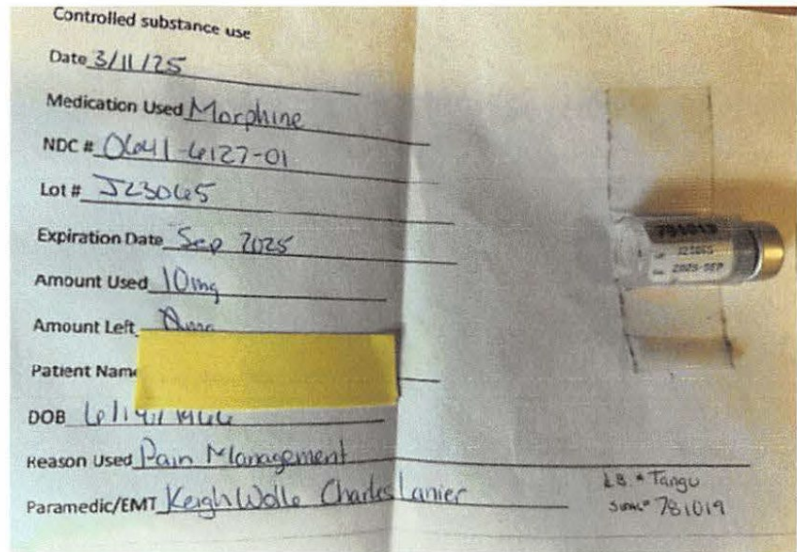 Controlled substance use
Date 3/11/25
Medication Used Morphine
NDC # 0641-6127-01
Lot # J23065
Expiration Date Sep 2025
Amount Used 10mg
Amount Left
Patient Name
DOB
Reason Used Pain Management
Paramedic/EMT Keigh Wolle Charles Lanier
781019
2025-SEP
781019